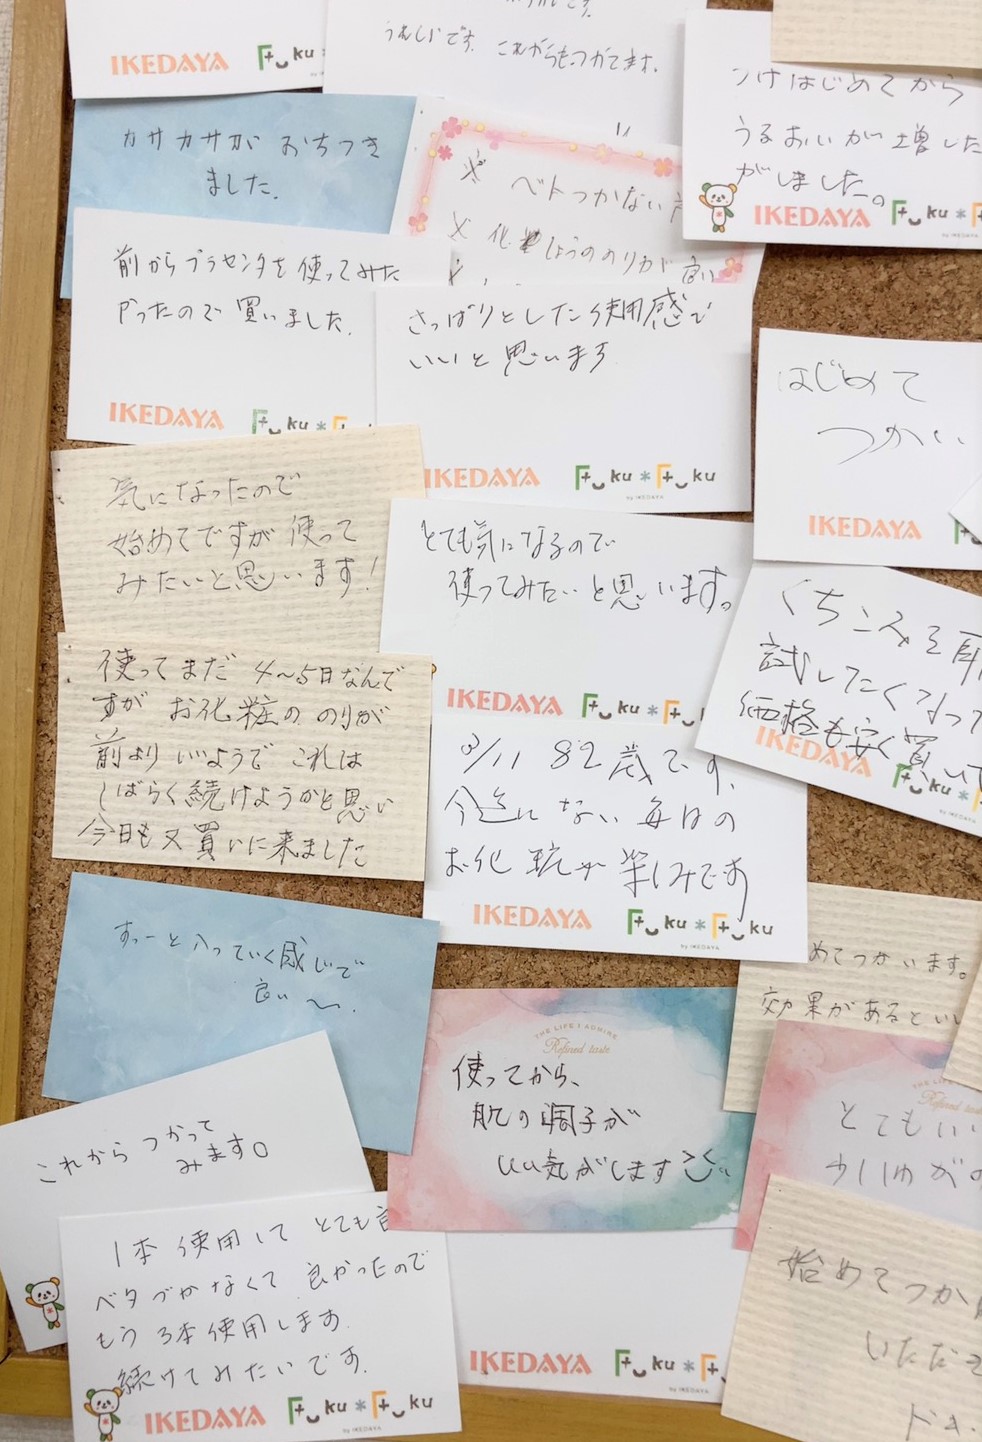 IKEDAYA Fuku
うれしいです。これからもつかてます。
つけはじめてから
うるおいが増した
がしました。
IKEDAYA Fuku*F
カサカサが おちつき
ました。
ベトつかない
化粧しょうののりが 良い
前からプラセンタを使ってみた
かったので 買いました。
IKEDAYA
さっぱりとした使用感で
いいと思います
IKEDAYA Fuku*Fuku
by IKEDAYA
はじめて
つかい
IKEDAYA
気になったので
始めてですが 使って
みたいと思います!
とても気になるので
使ってみたいと思います。
IKEDAYA Fuku*F
くちこみを
試したくなって
価格も安く買い
IKEDAYA Fuku*F
by IKEDAYA
使ってまだ 4〜5日なんで
すが お化粧の のりが
前より いいようで これは
しばらく続けようかと思い
今日も又買いに来ました
3/11 82歳です、
今迄にない 毎日の
お化粧が楽しみです
IKEDAYA Fuku*Fuku
by IKEDAYA
すっーと入っていく感じで
良い〜。
めてつかいます。
効果があるといい
THE LIFE I ADMIRE
Refined taste
使ってから、
肌の調子が
いい気がします
THE LIFE
Refined taste
とてもい
うりゅうが
これから つかって
みます。
1本使用して とても
ベタつかなくて 良かったので
もう3本使用します.
続けてみたいです.
IKEDAYA Fuku*Fuku
by IKEDAYA
IKEDAYA Fuku*F
by IKEDAYA
始めてつか
いただ